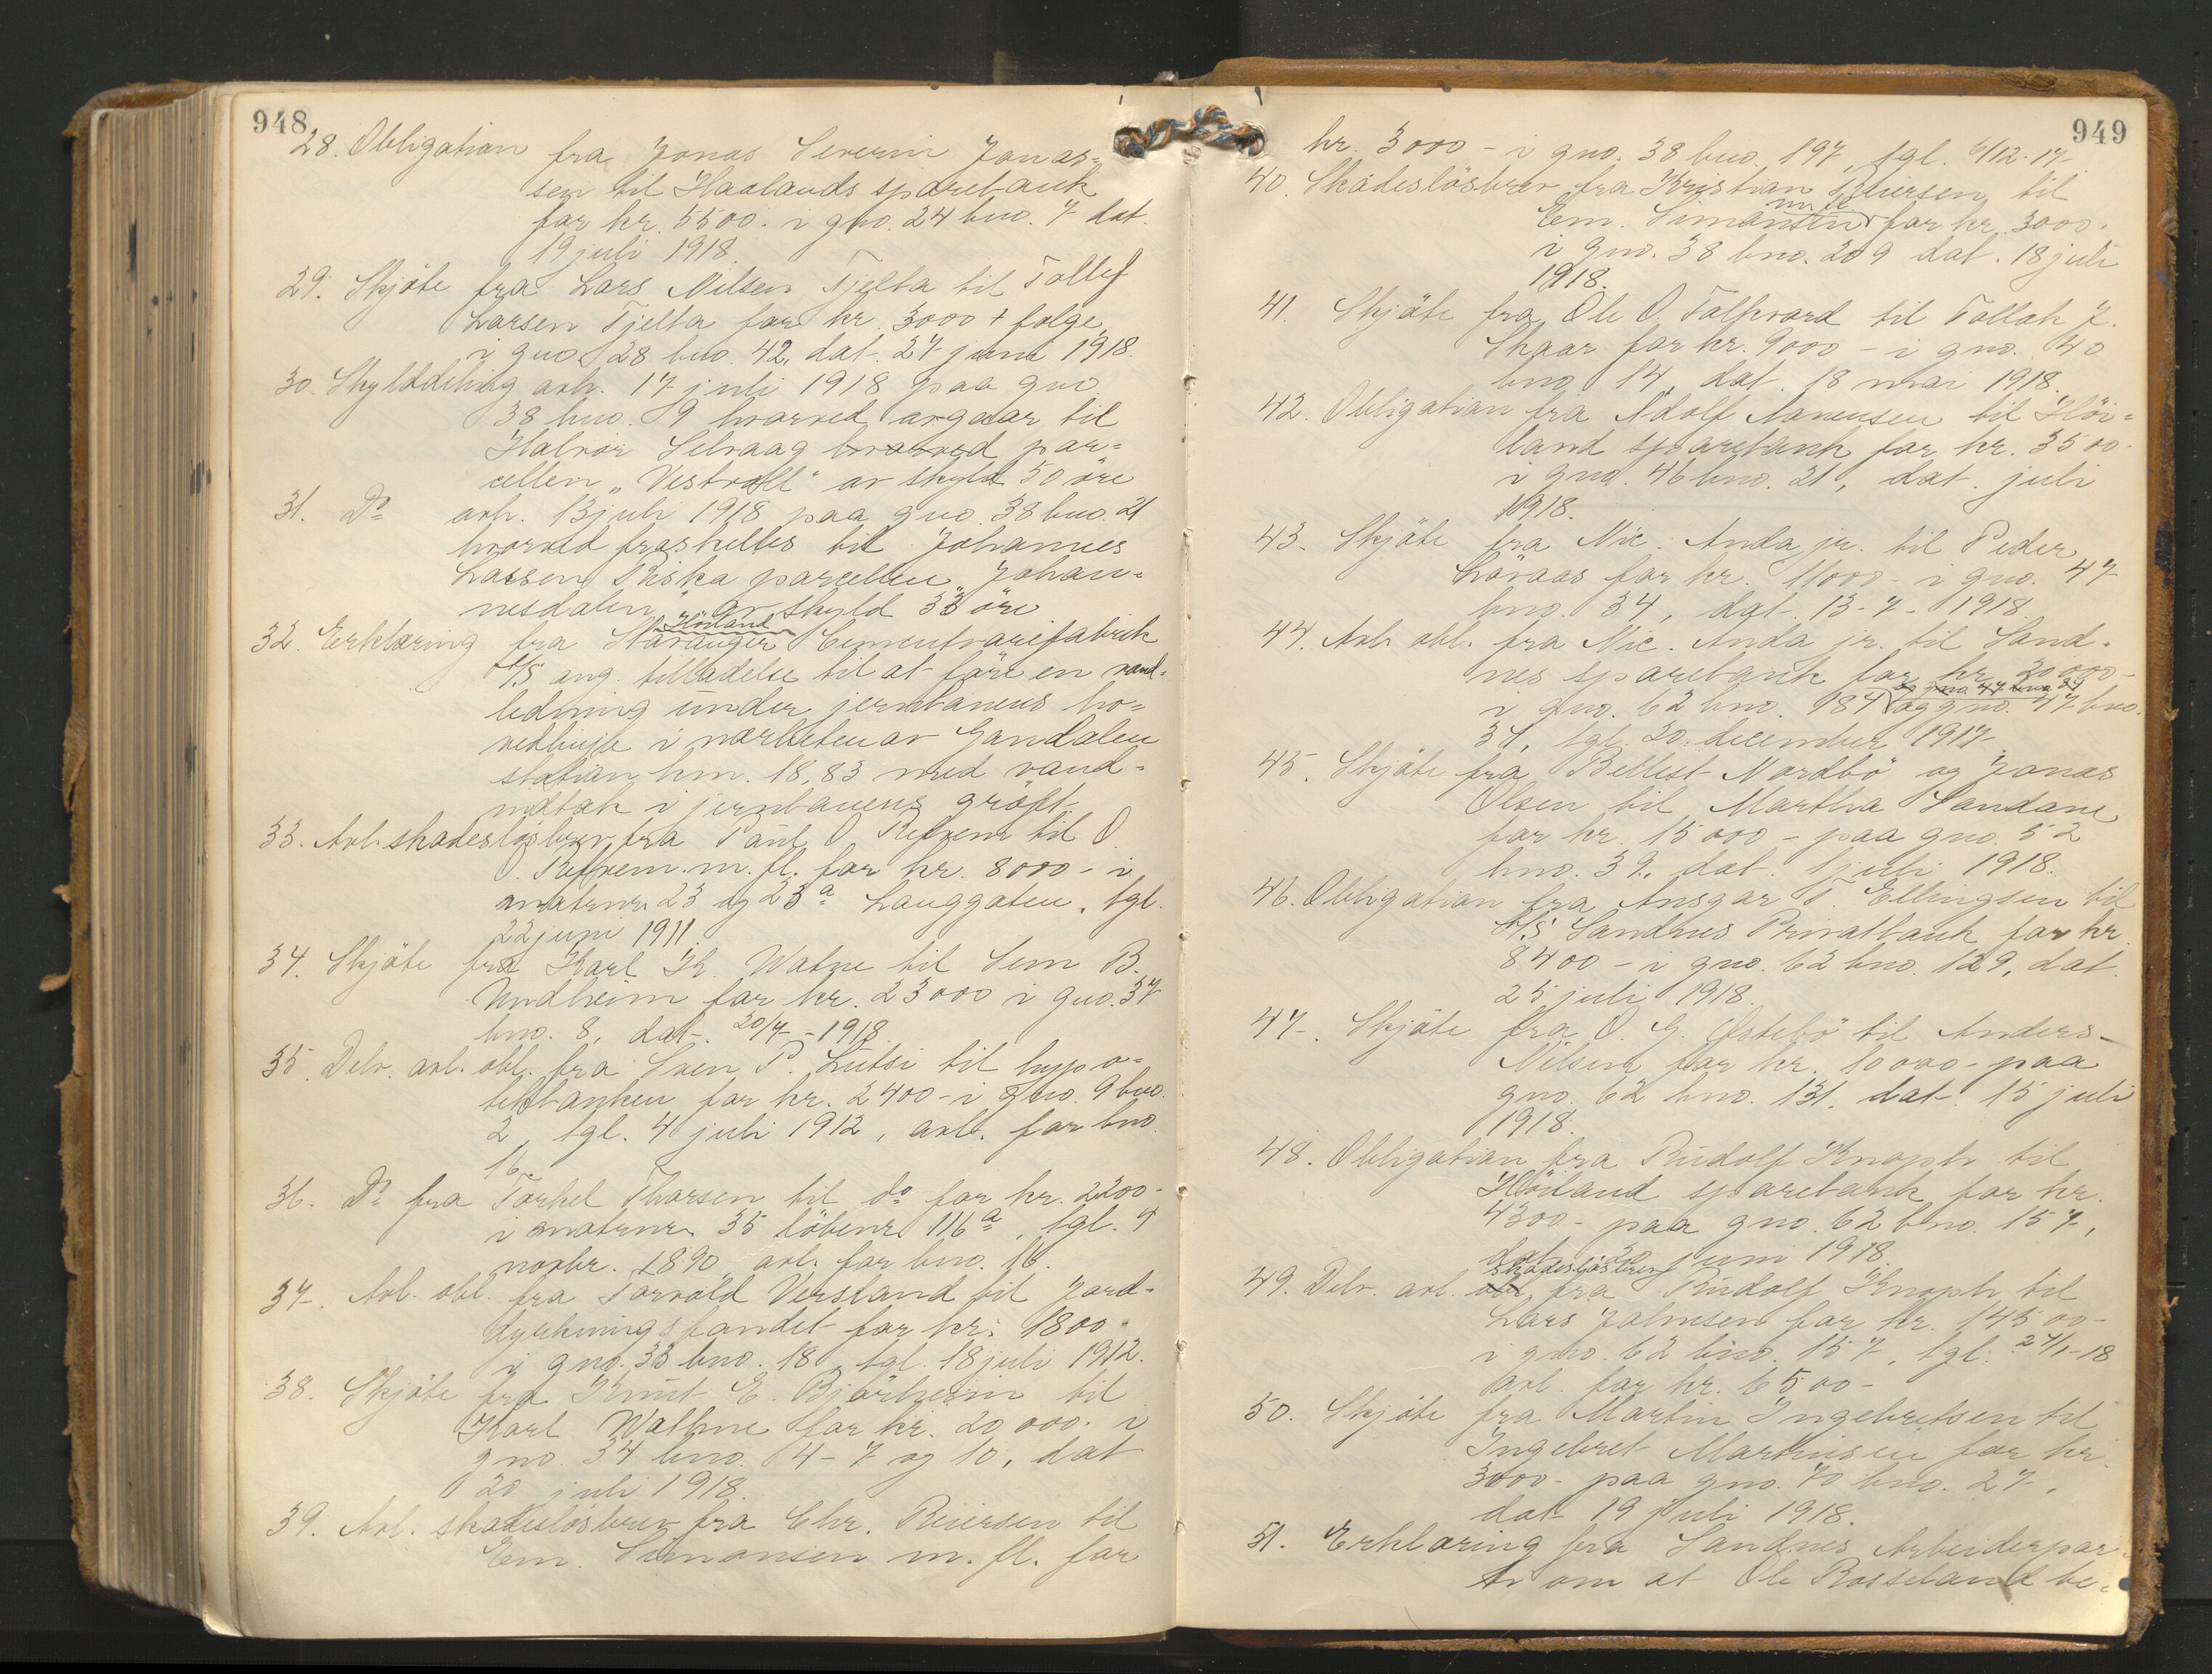 948
28. Obligation fra Jonas Severin Jonas=
sen til Haalands sparebank
for kr. 5500. i gno. 24 bno. 7 dat.
19 juli 1918.
29. Skjøte fra Lars Nilsen Tjelta til Tollef
Larsen Tjelta for kr. 3000 + folge
i gno. 28 bno. 42, dat. 27 juni 1918.
30. Skylddeling avh. 17 juli 1918 paa gno
38 bno. 9 hvorved avgaar til
Halvor Selvaag hvorved par=
cellen „Vestvoll" av skyld 50 öre
31. Do avh. 13 juli 1918 paa gno. 38 bno. 21
hvorved fraskilles til Johannes
Lassen Riska parcellen „Johan=
nesdalen" av skyld 33 öre
Höiland
32. Erklæring fra Stavanger Cementvarefabrik
A/S ang. tilladelse til at före en vand=
ledning under jernbanens ho=
vedlinje i nærheten av Gandalen
station km. 18,83 med vand=
indtak i jernbanens gröft.
33. Avl. skadeslösbrev fra Paul O. Refvem til O.
O. Refvem m. fl. for kr. 8000 - i
matrnr. 23 og 23a Langgaten, tgl.
22 juni 1911
34. Skjöte fra Karl K. Watne til Sem B.
Undheim for kr. 23000 i gno. 37
bno. 8, dat. 20/7 - 1918.
35. Delv. avl. obl. fra Sven P. Lutsi til hypo=
tekbanken for kr. 2400 - i gno. 9 bno.
2, tgl. 4 juli 1912, avl. for bno.
16.
36. Do fra Torkel Thorsen til do for kr. 2200 -
i matrnr. 35 löbenr. 116a, tgl. 4
novbr. 1890 avl. for bno. 16.
37. Avl. obl. fra Torvald Versland til Jord-
dyrkningsfondet for kr. 1800 -
i gno. 33 bno. 18, tgl. 18 juli 1912.
38. Skjöte fra Knut E. Bjørheim til
Karl Wathne for kr. 20,000. i
gno. 34 bno. 4 - 7 og 10, dat
20 juli 1918.
39. Avl. skadeslösbrev fra Chr. Reiersen til
Em. Simonsen m. fl. for
949
kr. 3000 - i gno. 38 bno. 197, tgl. 6/12-17-
40. Skadeslösbrev fra Kristian Reiersen til
m. fl.
Em. Simonsen for kr. 3000.
i gno. 38 bno. 209 dat. 18 juli
1918.
41. Skjöte fra Ole O. Folkvord til Tollak J.
Skaar for kr. 9000 - i gno. 40
bno. 14, dat. 18 mai 1918.
42. Obligation fra Adolf Aanensen til Höi=
land sparebank for kr. 3500 -
i gno. 46 bno. 21, dat. juli
1918.
43. Skjöte fra Nic. Anda jr. til Peder
Lövaas for kr. 11000 - i gno. 47
bno. 34, dat. 13 - 7 - 1918.
44. Avl. obl. fra Nic. Anda jr. til Sand=
nes sparebank for kr. 30,000 -
i gno. 62 bno. 184 og gno. 47 bno.
34, tgl. 20. december 1917
45. Skjöte fra Bellest Nordbö og Jonas
Olsen til Martha Sandane
for kr. 15000 - paa gno. 52
bno. 39, dat. 1 juli 1918.
46. Obligation fra Ansgar T. Ellingsen til
A/S Sandnes Privatbank for kr.
8400 - i gno. 62 bno. 129, dat.
25 juli 1918.
47. Skjöte fra O. G. Østebö til Anders
Nilsen for kr. 10000 - paa
gno. 62 bno. 131. dat. 15 juli
1918.
48. Obligation fra Rudolf Knoph til
Höiland sparebank for kr.
4300 - paa gno. 62 bno. 157,
dat. 20 juni 1918
skadeslösbrev
49. Delv. avl. obl. fra Rudolf Knoph til
Lars Johnsen for kr. 14500 -
i gno. 62 bno. 157, tgl. 27/1-18
avl. for kr. 6500 -
50. Skjöte fra Martin Ingebretsen til
Ingebret Martinsen for kr.
3000 - paa gno. 70 bno. 27,
dat. 19 juli 1918.
51. Erklæring fra Sandnes Arbeiderpar=
ti om at Ole Rosseland be=